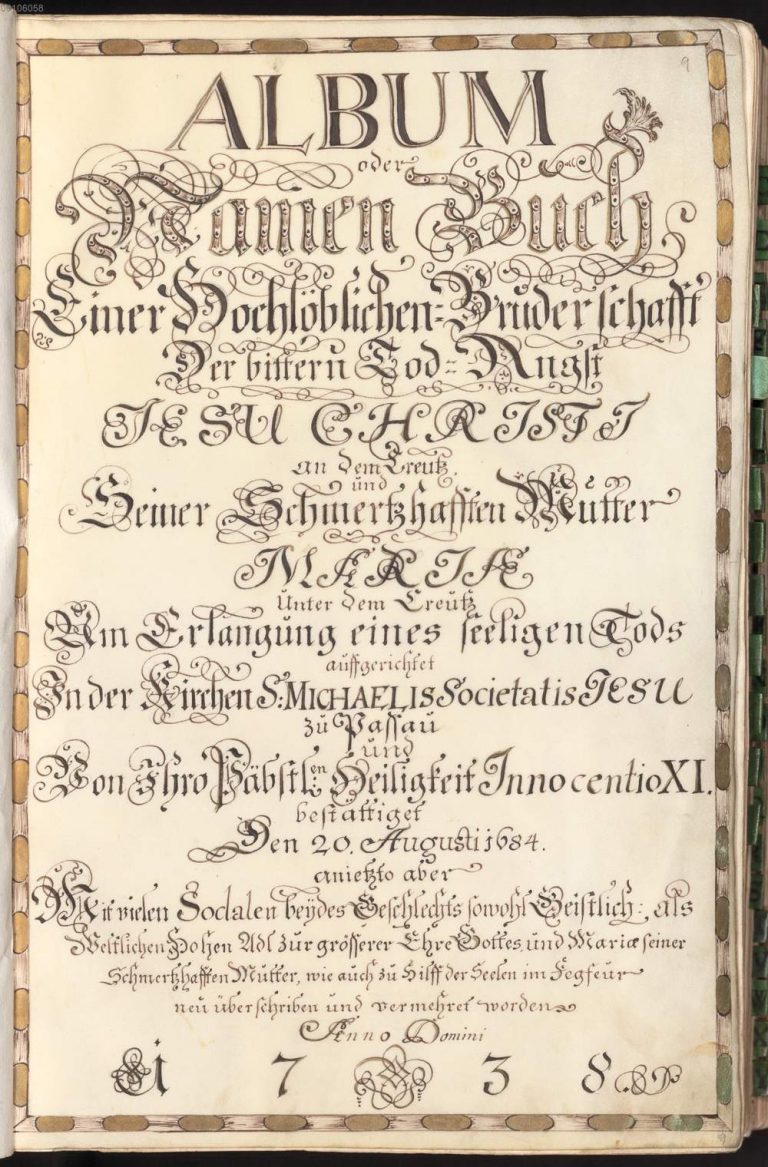 00106058
9
ALBUM
oder
Namen Buch
Einer Hochlöblichen=Bruderschafft
Der bittern Tod=Angst
JESU CHRISTI
an dem Creutz
und
Seiner Schmertzhafften Mutter
MARIÆ
Unter dem Creutz
Um Erlangung eines seeligen Tods
auffgerichtet
In der Kirchen S: MICHAELIS Societatis JESU
zu Passau
und
Von Ihro Päbstl:en Heiligkeit Innocentio XI.
bestättiget
Den 20. Augusti 1684.
anietzto aber
Mit vielen Sodalen beydes Geschlechts sowohl Geistlich:, als
Weltlichen Hohen Adl zur grösserer Ehre Gottes, und Mariæ seiner
Schmertzhafften Mutter, wie auch zu Hilff der Seelen im Fegfeur
neu überschriben und vermehret worden
Anno Domini
1738